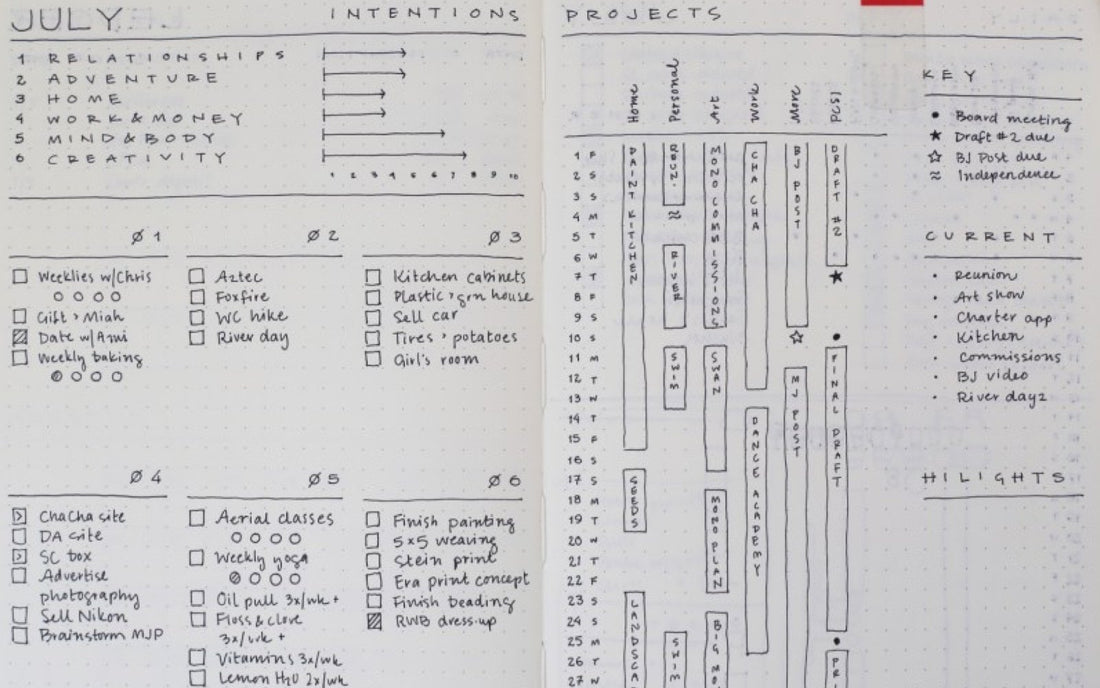 JULY
INTENTIONS
1 RELATIONSHIPS
2 ADVENTURE
3 HOME
4 WORK & MONEY
5 MIND & BODY
6 CREATIVITY
1 2 3 4 5 6 7 8 9 10
Ø1
Weeklies w/Chris
Gift > Miah
Date w/Ami
Weekly baking
Ø2
Aztec
Foxfire
WC hike
River day
Ø3
Kitchen cabinets
Plastic > grn house
Sell car
Tires > potatoes
Girl's room
Ø4
ChaCha site
DA site
SC box
Advertise
photography
Sell Nikon
Brainstorm MJP
Ø5
Aerial classes
Weekly yoga
Oil pull 3x/wk +
Floss & clove
3x/wk +
Vitamins 3x/wk
Lemon H2O 2x/wk
Ø6
Finish painting
5x5 weaving
Stein print
Era print concept
Finish beading
RWB dress-up
PROJECTS
Home
Personal
Art
Work
More
PCSI
1 F
2 S
3 S
4 M
5 T
6 W
7 T
8 F
9 S
10 S
11 M
12 T
13 W
14 T
15 F
16 S
17 S
18 M
19 T
20 W
21 T
22 F
23 S
24 S
25 M
26 T
27 W
PAINT KITCHEN
SEEDS
LANDSCA
REUN.
≈
RIVER
SWIM
SWIM
MONO COMMISSIONS
SWAN
MONO PLAN
BIG MO
CHA CHA
DANCE ACADEMY
BJ POST
MJ POST
DRAFT #2
FINAL DRAFT
PRI
KEY
Board meeting
Draft #2 due
BJ Post due
≈ Independence
CURRENT
• Reunion
• Art show
• Charter app
• Kitchen
• Commissions
• BJ video
• River day2
HILIGHTS